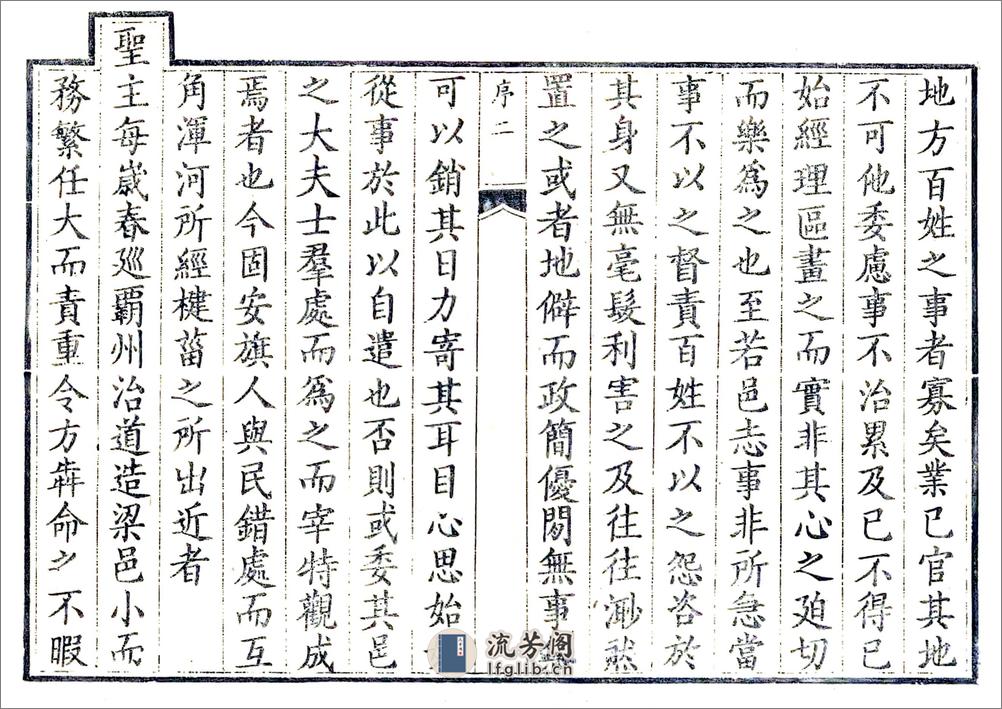 地方百姓之事者寡矣業已官其地
不可他委慮事不治累及已不得已
始經理區畫之而實非其心之廹切
而樂爲之也至若邑志事非所急當
事不以之督責百姓不以之怨咨於
其身又無毫髮利害之及往往然
置之或者地僻而政簡優閒無事
序二
可以銷其日力寄其耳目心思始
從事於此以自遣也否則或委其邑
之大夫士羣處而爲之而宰特觀成
焉者也今固安旗人與民錯處而互
角渾河所經楗菑之所出近者
聖主每歲春廵覇州治道造梁邑小而
務繁任大而責重令方犇命之不暇
流芳阁
lfglib.cn